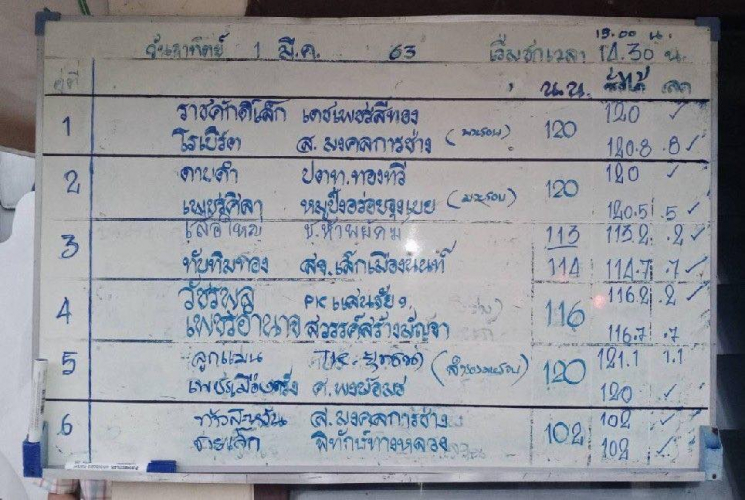 วันอาทิตย์ 1 มี.ค. 63 เริ่มชกเวลา 14.30 น.
15.00 น.
คู่ที่ น.น. ชั่งได้ เลต
1 ราชศักดิ์เล็ก เดชเพชรสีทอง 120 120 ✓
โรเบิร์ต ส.มงคลการช่าง 120.8 .8 ✓
2 ดาบดำ ปตท.ทองทวี 120 120 ✓
เพชรศิลา หมูปิ้งอร่อยจุงเบย 120.5 .5 ✓
3 เสือใหม่ 113 113.2 .2 ✓
ทับทิมทอง สจ.เล็กเมืองนนท์ 114 114.7 .7 ✓
4 วัชรพล P.K.แสนชัย 116 116.2 .2 ✓
เพชรอำนาจ สวรรค์สร้างบัญชา 116.7 .7
5 ลูกแมน 120 121.1 1.1
เพชรเมืองตรัง 120 ✓
6 ส.มงคลการช่าง 102 102 ✓
ชายเล็ก พิทักษ์ทางหลวง 102 ✓